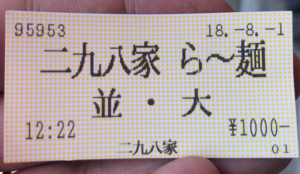 95953 18.-8.-1
二九八家 ら～麺
並・大
12:22 ¥1000-
二九八家 01